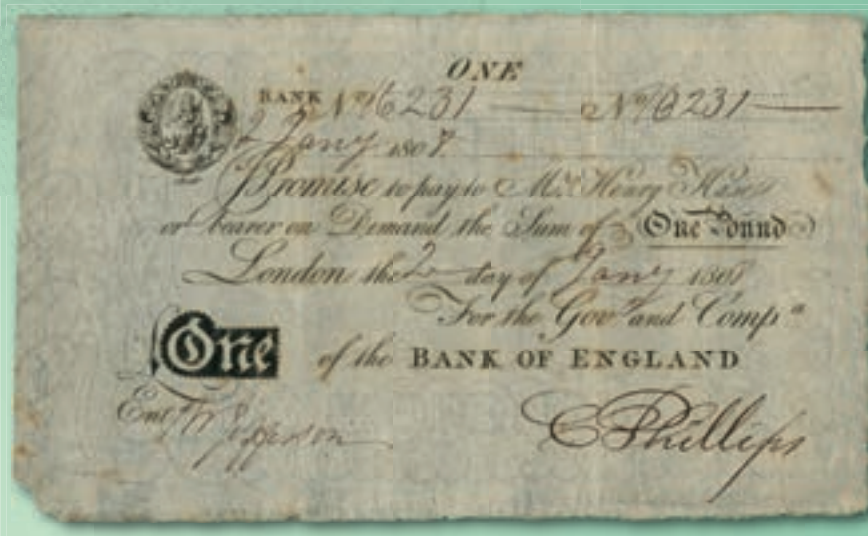 ONE
BANK No 16231 No 16231
2 Jany 1808
Promise to pay to Mr. Henry Hase
or bearer on Demand the Sum of One Pound
London the 2 day of Jany 1808
For the Govr. and Compa.
One of the BANK OF ENGLAND
Entd.
C Phillips